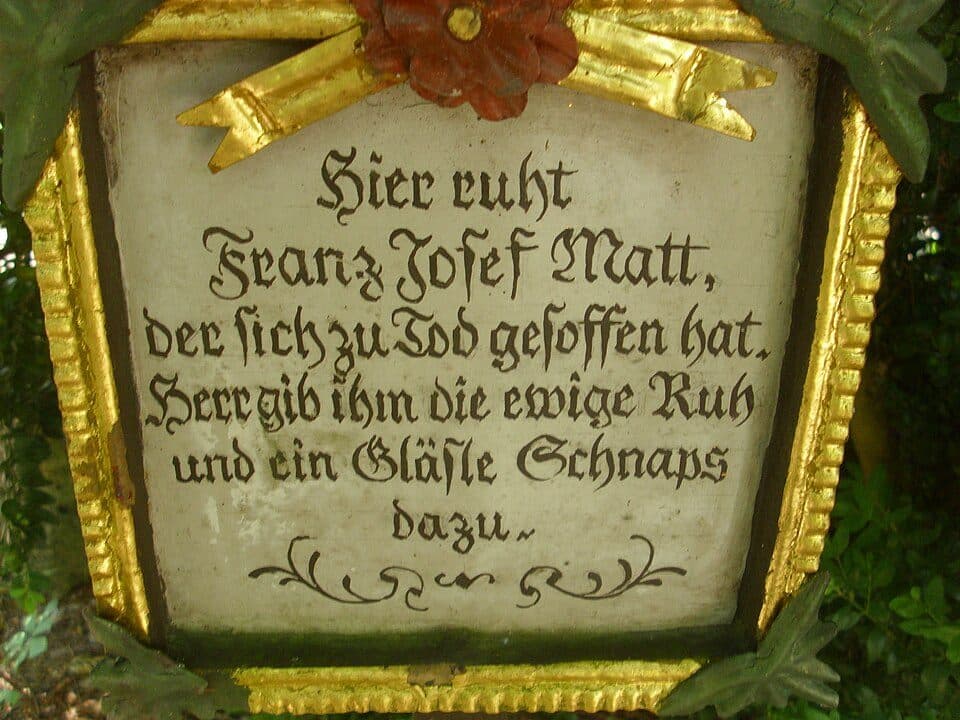 Hier ruht
Franz Josef Matt,
der sich zu Tod gesoffen hat.
Herr gib ihm die ewige Ruh
und ein Gläsle Schnaps
dazu.